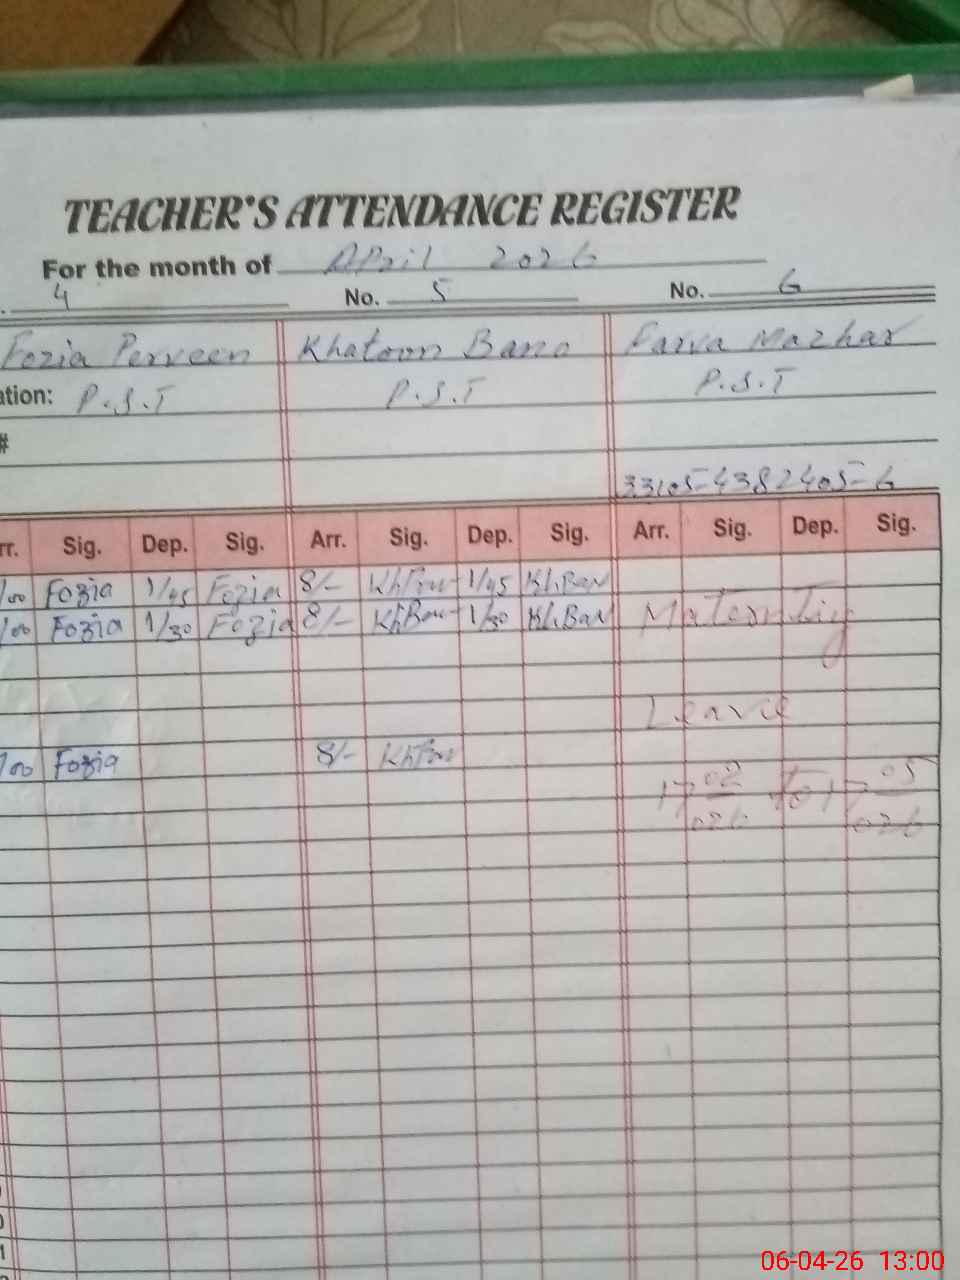 TEACHER'S ATTENDANCE REGISTER
For the month of April 2026
. 4 No. 5 No. 6
Fozia Perveen Khatoon Bano Farva Mazhar
ation: P.S.T P.S.T P.S.T
#
33105-4382405-6
rr. Sig. Dep. Sig. Arr. Sig. Dep. Sig. Arr. Sig. Dep. Sig.
/00 Fozia 1/45 Fozia 8/- 1/45 Kh.Ban
/00 Fozia 1/30 Fozia 8/- KhBano 1/30 Kh.Ban Materntiy
Leave
/00 Fozia 8/-
17 02 026 to 17 05 026
06-04-26 13:00